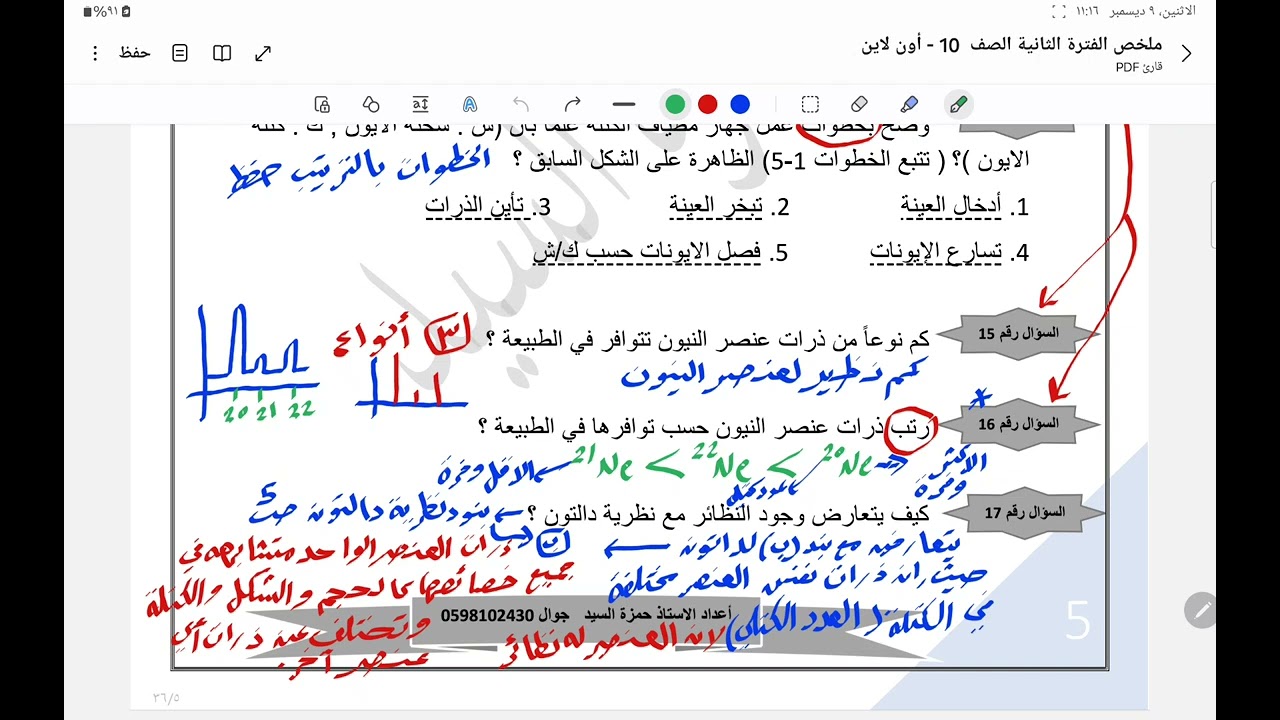 الاثنين، ٩ ديسمبر ١١:١٦
٩١%
ملخص الفترة الثانية الصف 10 - أون لاين
قارئ PDF
حفظ
وضح بخطوات عمل جهاز مطياف الكتلة علما بان (ش : شحنة الايون , ك : كتلة
الايون )؟ ( تتبع الخطوات 1-5) الظاهرة على الشكل السابق ؟
الخطوات بالترتيب حفظ
1. أدخال العينة 2. تبخر العينة 3. تأين الذرات
4. تسارع الإيونات 5. فصل الايونات حسب ك/ش
السؤال رقم 15
كم نوعاً من ذرات عنصر النيون تتوافر في الطبيعة ؟
٣ أنواع
كم نظير لعنصر النيون
20 21 22
السؤال رقم 16
رتب ذرات عنصر النيون حسب توافرها في الطبيعة ؟
الأكثر وفرة
20Ne > 22Ne > 21Ne
الاقل وفرة
السؤال رقم 17
كيف يتعارض وجود النظائر مع نظرية دالتون ؟
بنود نظرية دالتون
يتعارض مع بند (ب) لدالتون
حيث ان ذرات نفس العنصر مختلفة
في الكتلة (العدد الكتلي) لان العنصر له نظائر
ذرات العنصر الواحد متشابهه في
جميع خصائصها كالحجم والشكل والكتلة
وتختلف عن ذرات أي
عنصر آخر.
أعداد الاستاذ حمزة السيد جوال 0598102430
5
٣٦/٥